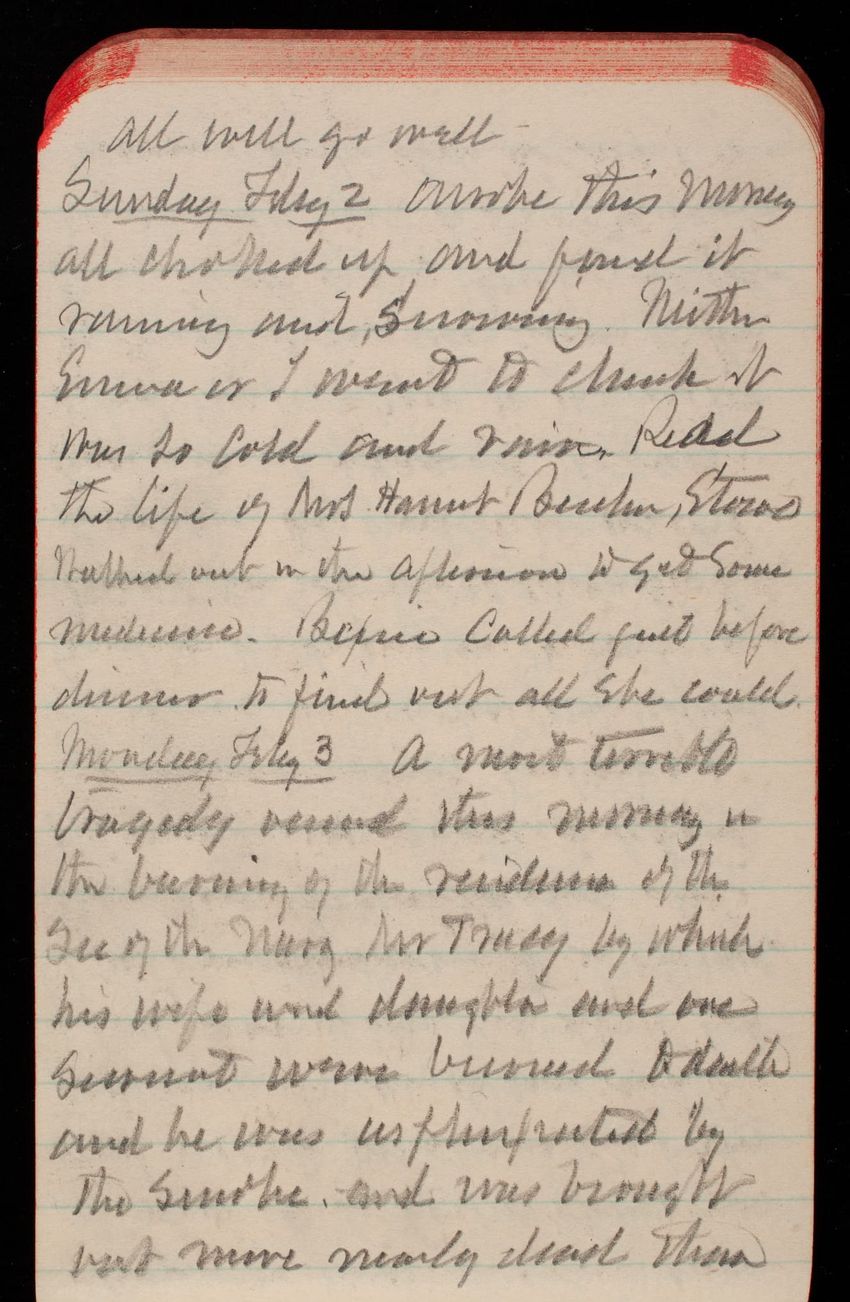 all will go well
Sunday Feby 2 awoke this morning
all choked up and found it
raining and, Snowing. Neither
Emma or I went to church it
was so cold and rainy. Read
the life of Mrs Harriet Beecher, Stowe
Walked out in the afternoon to get some
medicine. called just before
dinner to find out all she could.
Monday Feby 3 A most terrible
tragedy occured this morning in
the burning of the residence of the
Sec of the Navy Mr Tracey by which
his wife and daughter and one
servant were burned to death
and he was asphyxiated by
the smoke. and was brought
out more nearly dead than